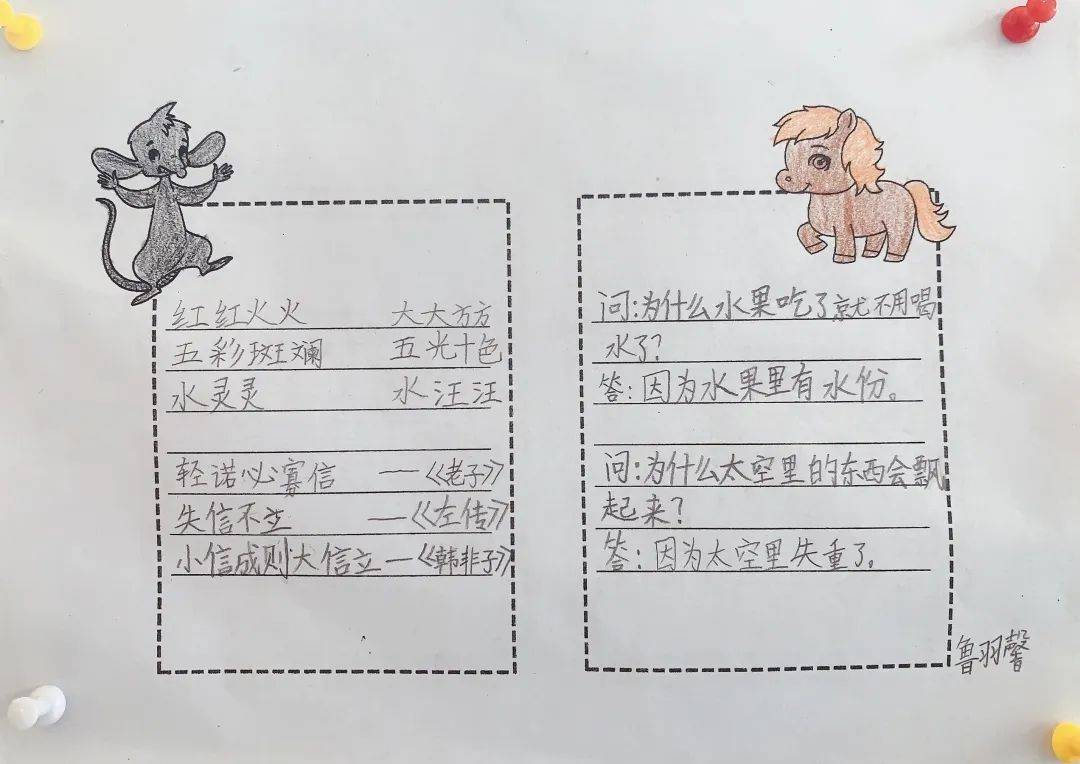 红红火火 大大方方
五彩斑斓 五光十色
水灵灵 水汪汪
轻诺必寡信 ——《老子》
失信不立 ——《左传》
小信成则大信立——《韩非子》
问:为什么水果吃了就不用喝
水了?
答:因为水果里有水份。
问:为什么太空里的东西会飘
起来?
答:因为太空里失重了。
鲁羽馨